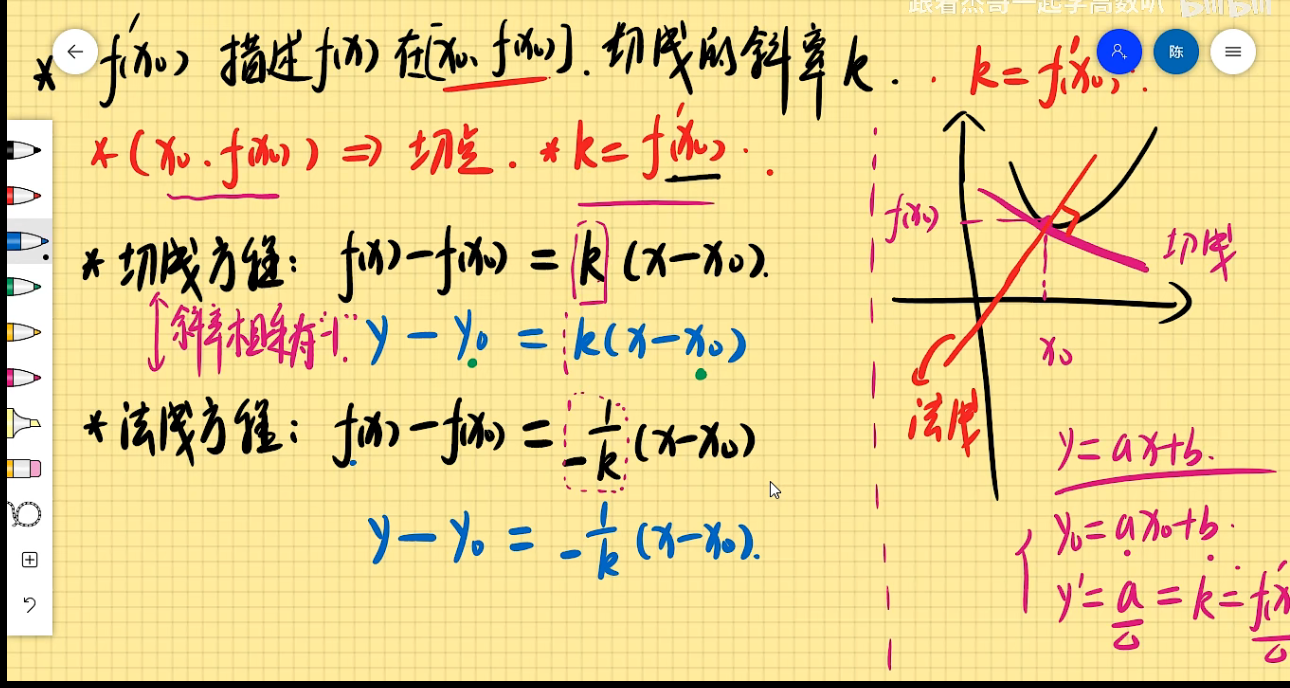 跟着杰哥一起学高数叭 bilibili
* f'(x₀) 描述f(x) 在[x₀、f(x₀)]. 切线的斜率 k. . k=f'(x₀).
陈
*(x₀.f(x₀)) ⇒ 切点. * k=f'(x₀).
* 切线方程: f(x)-f(x₀) = k (x-x₀).
斜率相乘为"-1".
y-y₀ = k(x-x₀)
* 法线方程: f(x)-f(x₀) = -1/k (x-x₀)
y-y₀ = -1/k (x-x₀).
f(x₀)
切线
x₀
法线
y=ax+b.
y₀=ax₀+b.
y'=a=k=f'(x